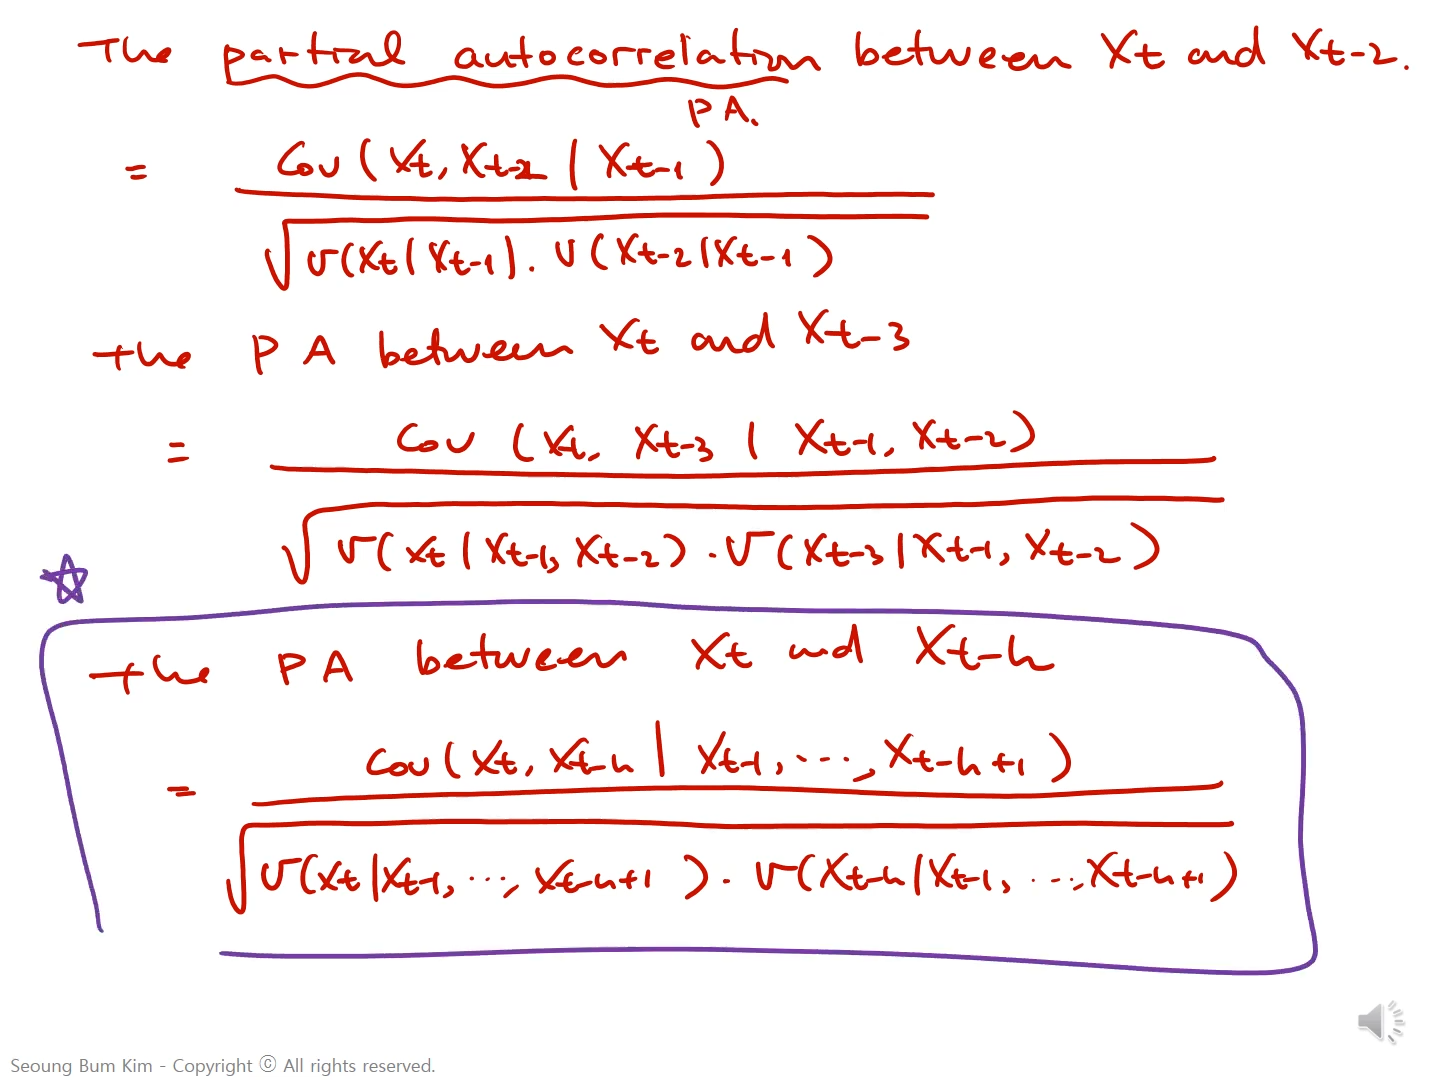 The partial autocorrelation between Xt and Xt-2.
PA.
= Cov(Xt, Xt-2 | Xt-1)
√V(Xt | Xt-1). V(Xt-2 | Xt-1)
the PA between Xt and Xt-3
= Cov (Xt, Xt-3 | Xt-1, Xt-2)
√V(Xt | Xt-1, Xt-2) . V(Xt-3 | Xt-1, Xt-2)
the PA between Xt and Xt-h
= Cov(Xt, Xt-h | Xt-1, ..., Xt-h+1)
√V(Xt | Xt-1, ..., Xt-h+1) . V(Xt-h | Xt-1, ..., Xt-h+1)
Seoung Bum Kim - Copyright ⓒ All rights reserved.